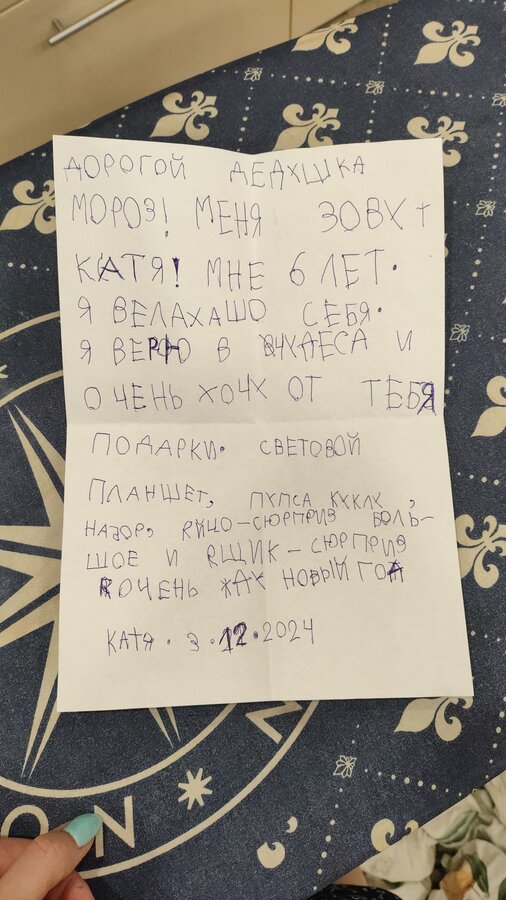 ДОРОГОЙ ДЕДУШКА
МОРОЗ! МЕНЯ ЗОВУТ
КАТЯ! МНЕ 6 ЛЕТ.
Я ВЕЛАХАШО СЕБЯ.
Я ВЕРЮ В ЧУДЕСА И
ОЧЕНЬ ХОЧУ ОТ ТЕБЯ
ПОДАРКИ. СВЕТОВОЙ
ПЛАНШЕТ, ПУПСА КУКЛУ,
НАБОР, ЯЙЦО-СЮРПРИЗ БОЛЬ-
ШОЕ И ЯЩИК-СЮРПРИЗ
Я ОЧЕНЬ ЖДУ НОВЫЙ ГОД
КАТЯ. 3.12.2024